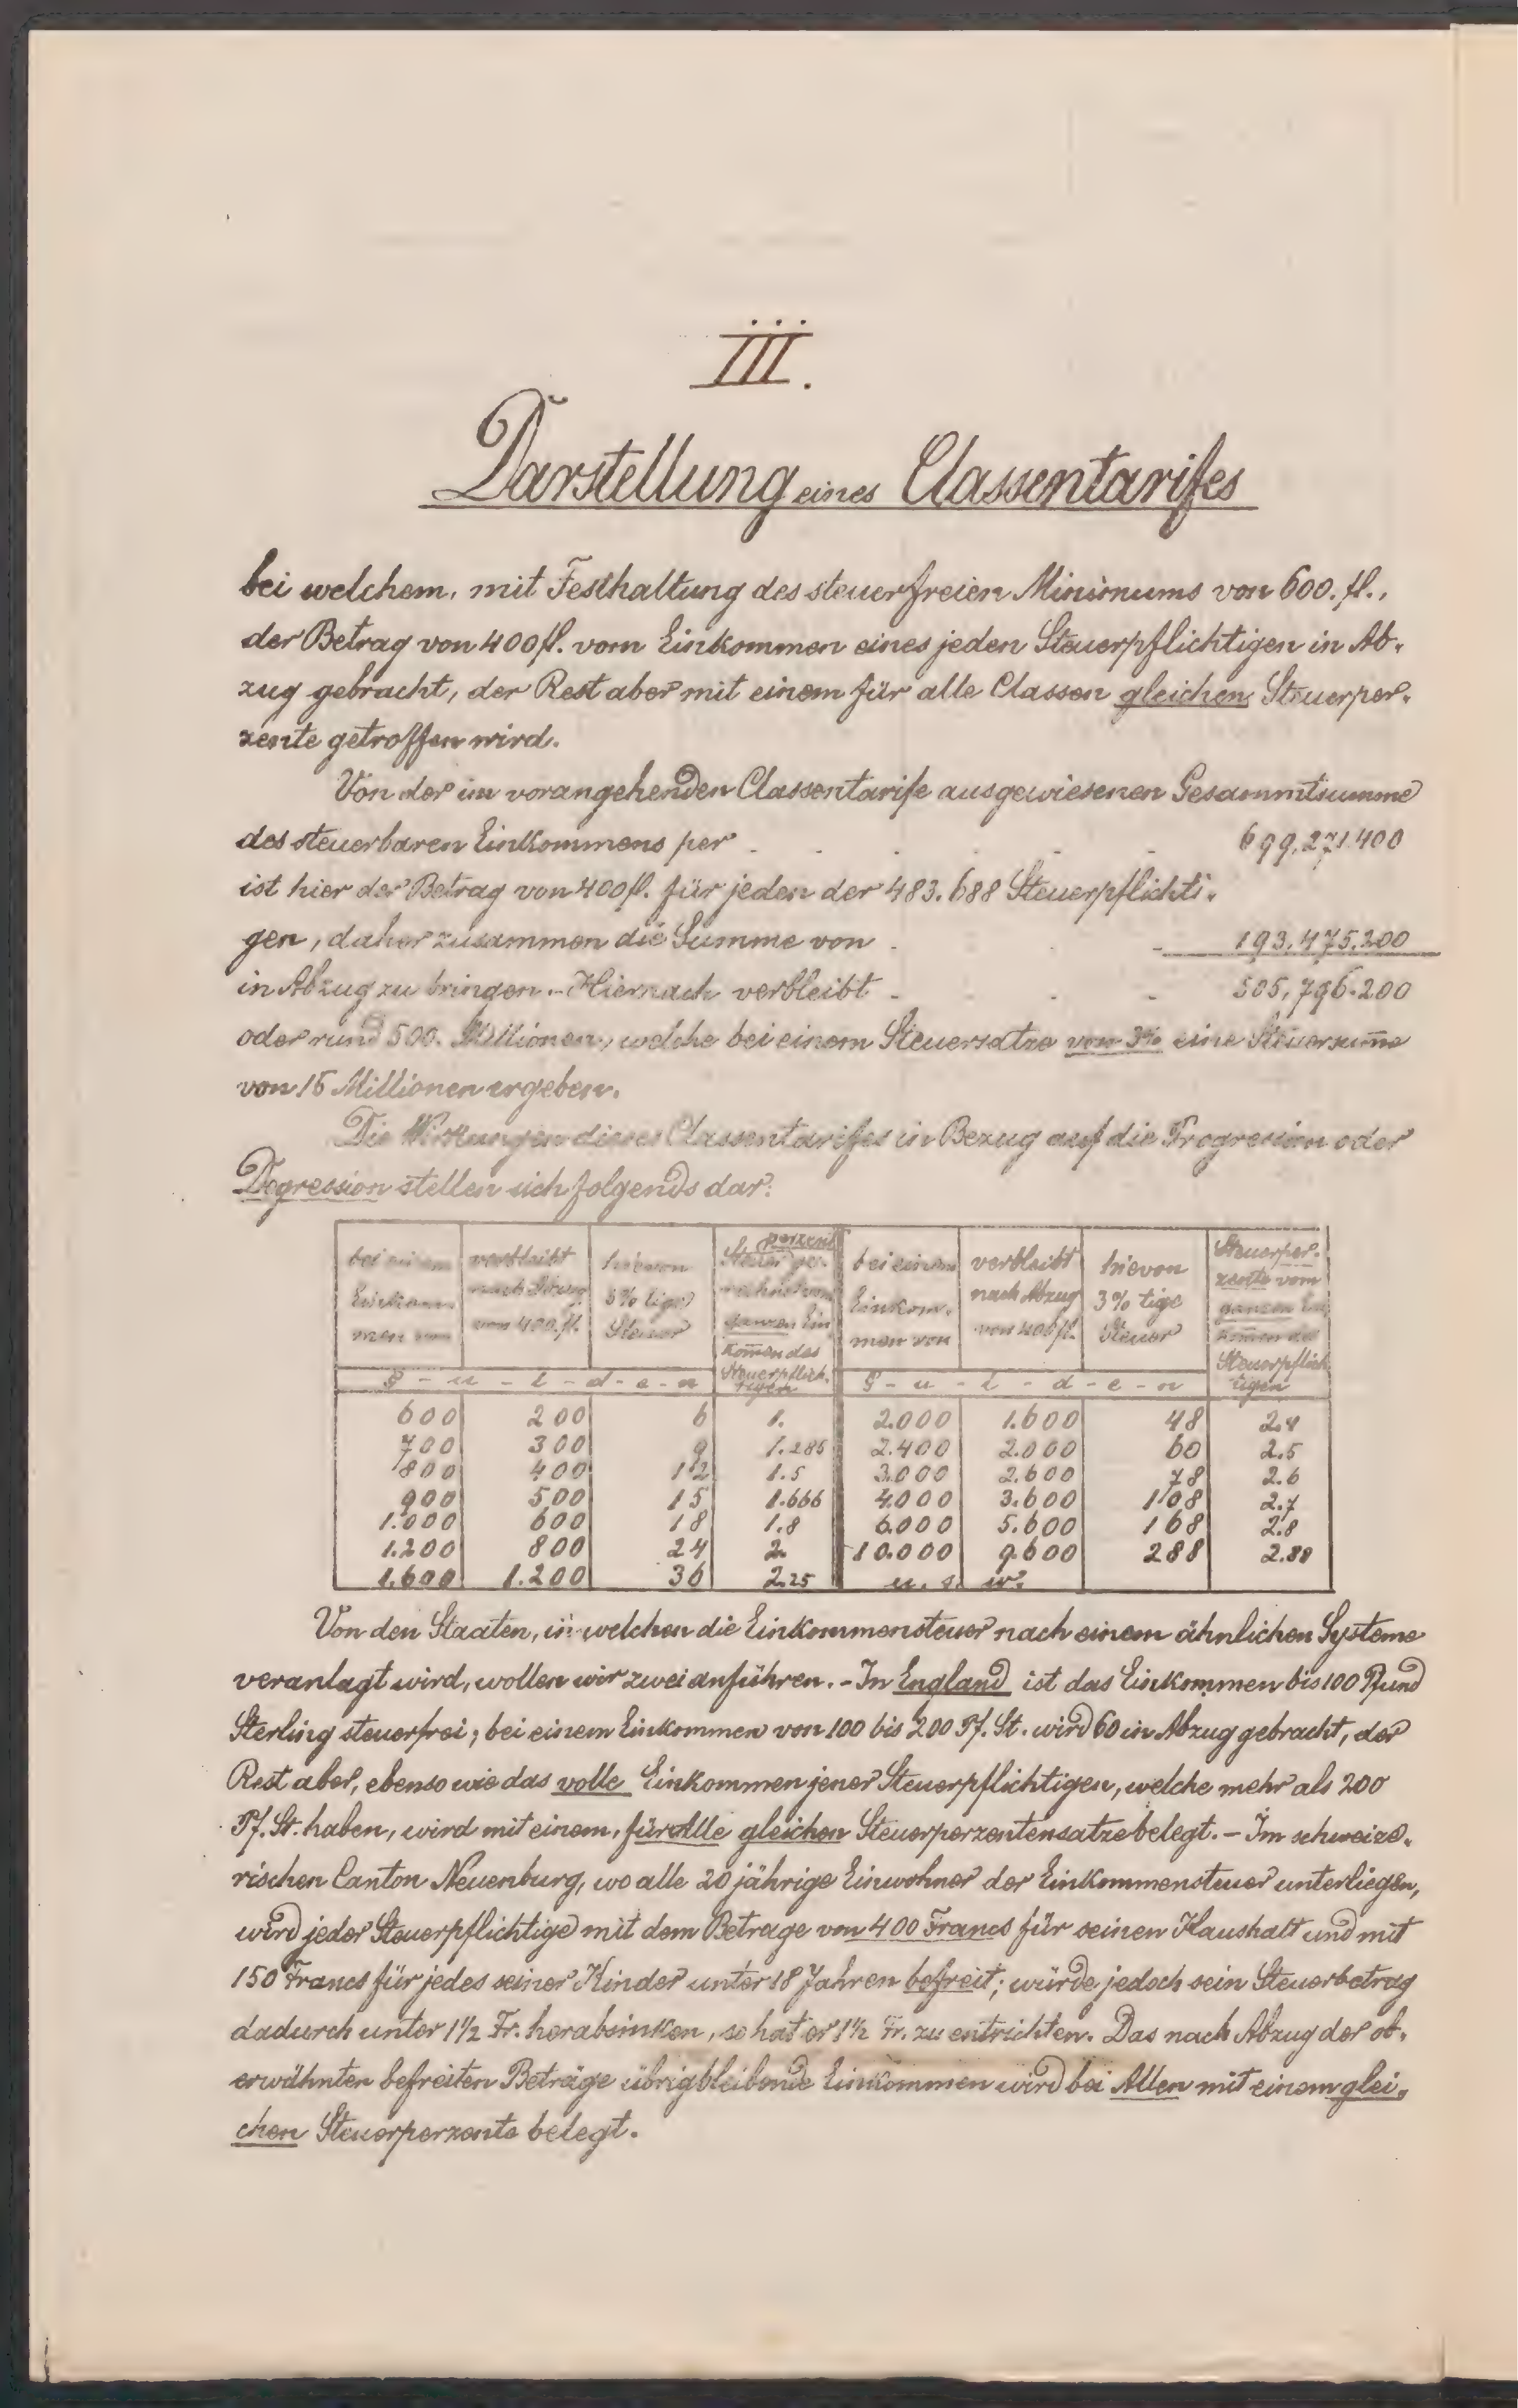 III.
Darstellung eines Classentarifes
bei welchem, mit Festhaltung des steuerfreien Minimums von 600. fl.,
der Betrag von 400 fl. vom Einkommen eines jeden Steuerpflichtigen in Ab-
zug gebracht, der Rest aber mit einem für alle Classen gleichen Steuerper-
zente getroffen wird.
Von der im vorangehenden Classentarife ausgewiesenen Gesammtsumme
des steuerbaren Einkommens per . . . . . . 699,271.400
ist hier der Betrag von 400 fl. für jeden der 483.688 Steuerpflichti-
gen, daher zusammen die Summe von . . 193,475.200
in Abzug zu bringen. - Hiernach verbleibt . . . 505,796.200
oder rund 500. Millionen, welche bei einem Steuersatze von 3% eine Steuersum̄e
von 15 Millionen ergeben.
Die Wirkungen dieses Classentarifes in Bezug auf die Progression oder
Degression stellen sich folgends dar:
bei einem Einkom- men von | verbleibt nach Abzug von 400. fl. | hievon 3% tige Steuer | Steuerperzent vom ganzen Ein kom̄en des Steuerpflich- tigen | bei einem Einkom- men von | verbleibt nach Abzug von 400 fl. | hievon 3% tige Steuer | Steuerper- zente vom ganzen Ein kom̄en des Steuerpflich tigen
G - u - l - d - e - n | G - u - l - d - e - n
600 200 6 1. 2.000 1.600 48 2.4
700 300 9 1.285 2.400 2.000 60 2.5
800 400 12 1.5 3.000 2.600 78 2.6
900 500 15 1.666 4.000 3.600 108 2.7
1.000 600 18 1.8 6.000 5.600 168 2.8
1.200 800 24 2. 10.000 9.600 288 2.88
1.600 1.200 36 2.25 u. s. w.
Von den Staaten, in welchen die Einkommensteuer nach einem ähnlichen Systeme
veranlagt wird, wollen wir zwei anführen. - In England ist das Einkommen bis 100 Pfund
Sterling steuerfrei; bei einem Einkommen von 100 bis 200 Pf. St. wird 60 in Abzug gebracht, der
Rest aber, ebenso wie das volle Einkommen jener Steuerpflichtigen, welche mehr als 200
Pf. St. haben, wird mit einem, für Alle gleichen Steuerperzentensatze belegt. - Im schweize-
rischen Canton Neuenburg, wo alle 20 jährige Einwohner der Einkommensteuer unterliegen,
wird jeder Steuerpflichtige mit dem Betrage von 400 Francs für seinen Haushalt und mit
150 Francs für jedes seiner Kinder unter 18 Jahren befreit; würde jedoch sein Steuerbetrag
dadurch unter 1½ Fr. herabsinken, so hat er 1½ Fr. zu entrichten. Das nach Abzug der ob-
erwähnten befreiten Beträge übrigbleibende Einkommen wird bei Allen mit einem glei-
chen Steuerperzente belegt.